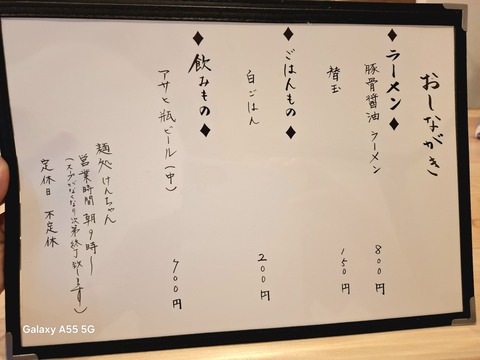 おしながき
◆ラーメン◆
豚骨醤油ラーメン 800円
替玉 150円
◆ごはんもの◆
白ごはん 200円
◆飲みもの◆
アサヒ瓶ビール(中) 700円
麺処けんちゃん
営業時間 朝9時〜
(スープがなくなり次第終了致します)
定休日 不定休
Galaxy A55 5G